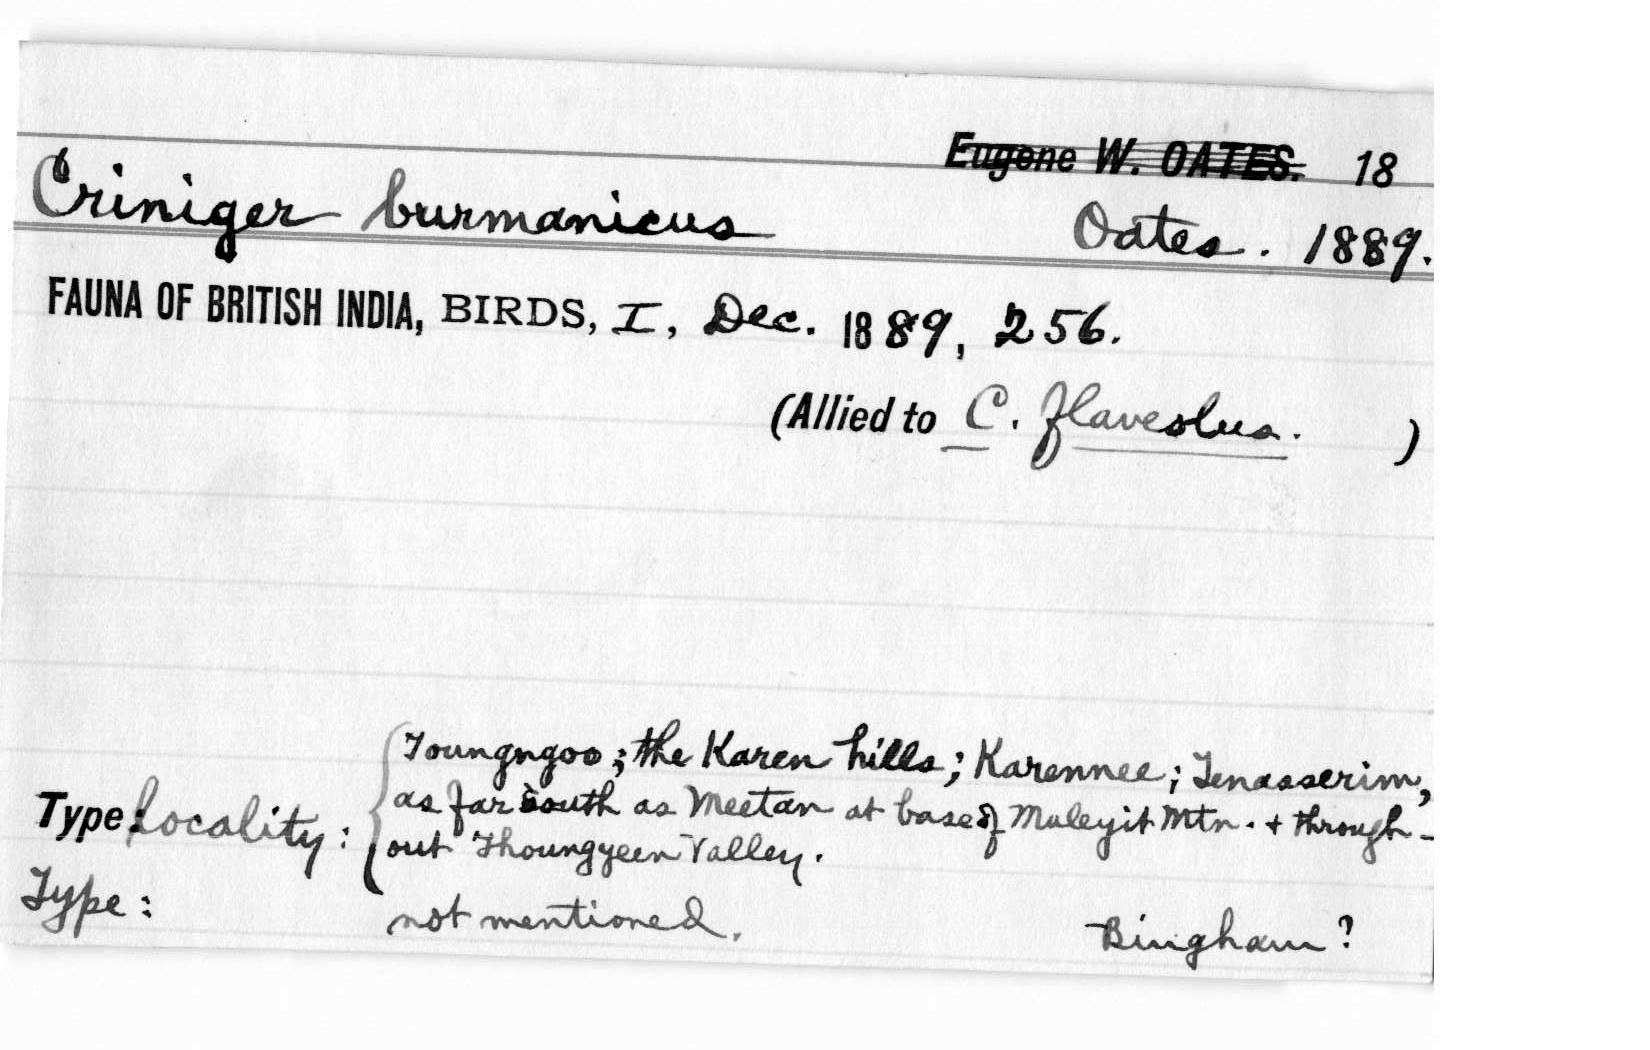 Eugene W. OATES. 18
Criniger burmanicus Oates. 1889.
FAUNA OF BRITISH INDIA, BIRDS, I, Dec. 1889, 256.
(Allied to C. flaveolus. )
Toungngoo; the Karen hills; Karennee; Tenasserim,
as far south as Meetan at base of Muleyit Mtn. + through-
Type locality: out Thoungyeen Valley.
Type: not mentioned. Bingham?